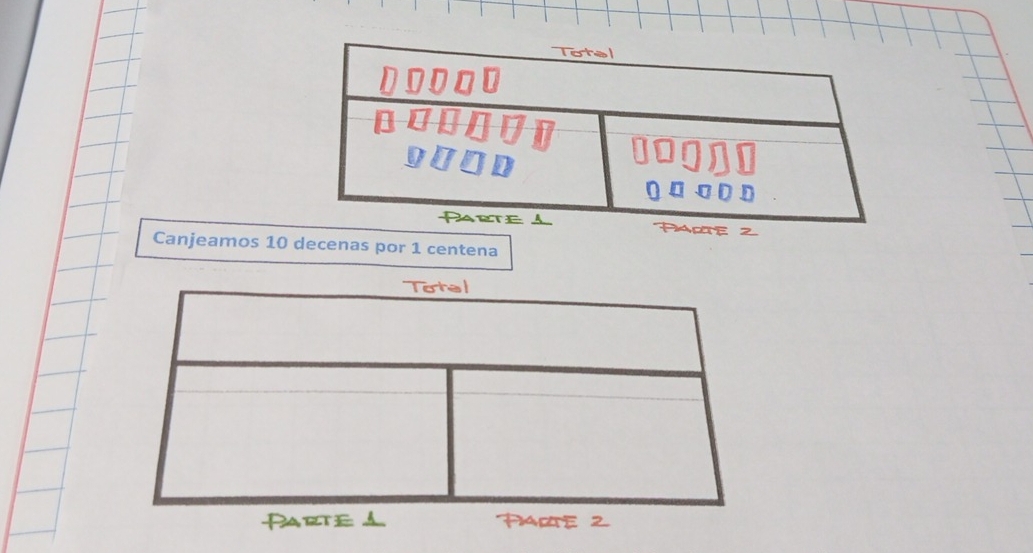 Total
PARTE 1
PARTE 2
Canjeamos 10 decenas por 1 centena
Total
PARTE 1
PARTE 2